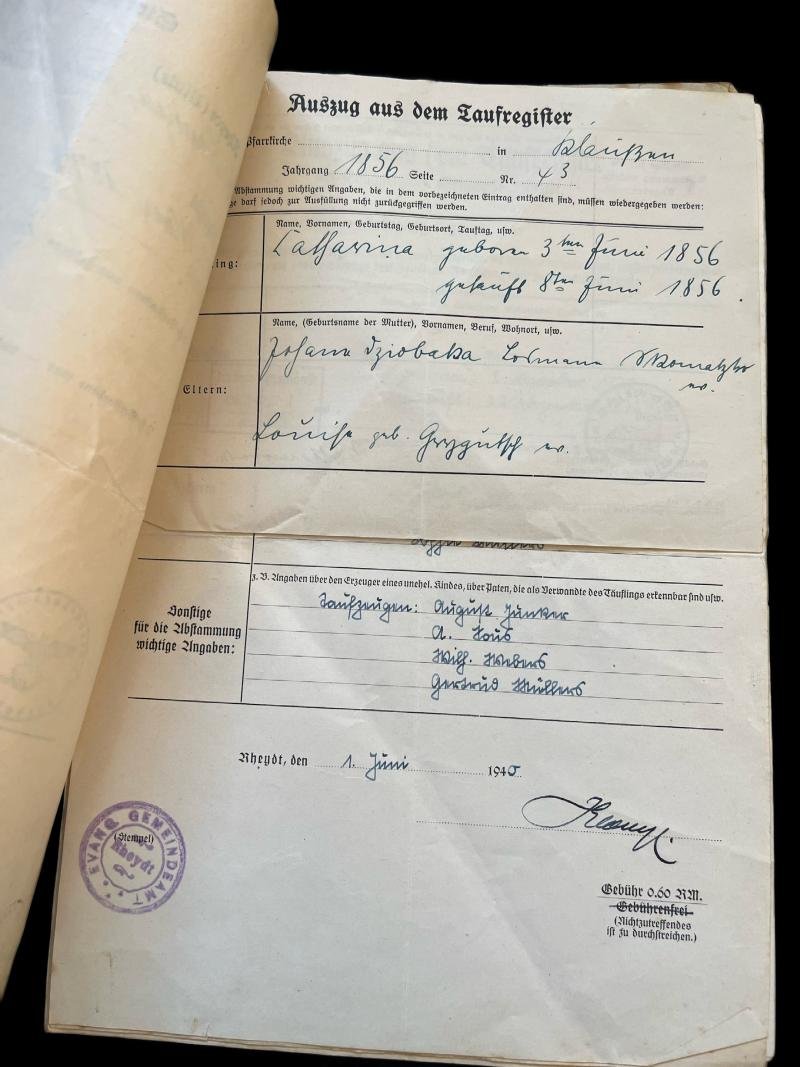 Auszug aus dem Taufregister
Pfarrkirche in Klaußen
Jahrgang 1856 Seite Nr. 43
Abstammung wichtigen Angaben, die in dem vorbezeichneten Eintrag enthalten sind, müssen wiedergegeben werden:
darf jedoch zur Ausfüllung nicht zurückgegriffen werden.
Name, Vornamen, Geburtstag, Geburtsort, Tauftag, usw.
ing:
Catharina geboren 3ten Juni 1856
getauft 8ten Juni 1856.
Name, (Geburtsname der Mutter), Vornamen, Beruf, Wohnort, usw.
Johann Dziobaka Losmann Skomatzko
ev.
Eltern:
Louise geb. Grygutsch ev.
z. B. Angaben über den Erzeuger eines unehel. Kindes, über Paten, die als Verwandte des Täuflings erkennbar sind usw.
Sonstige
für die Abstammung
wichtige Angaben:
Taufzeugen: August Junker
A. Tous
Wilh. Webers
Gertrud Müllers
Rheydt, den 1. Juni 1940
(Stempel)
EVANG. GEMEINDEAMT
Rheydt
Gebühr 0.60 RM.
Gebührenfrei
(Nichtzutreffendes
ist zu durchstreichen.)